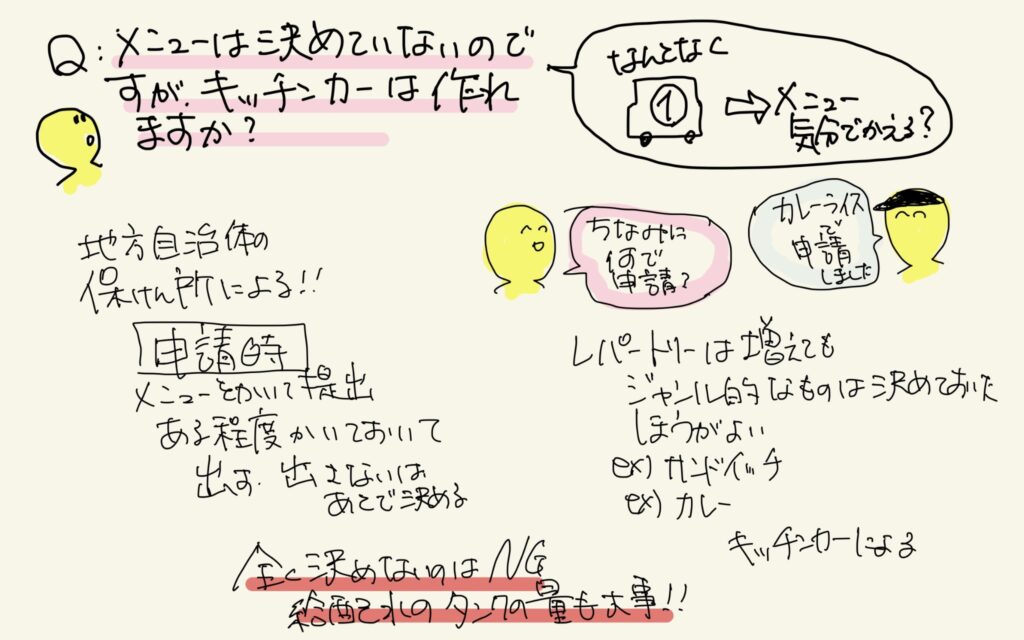 Q：メニューは決めていないので
すが、キッチンカーは作れ
ますか？
なんとなく
1
メニュー
気分でかえる？
地方自治体の
保けん所による！！
申請時
メニューをかいて提出
ある程度かいておいて
出す、出さないは
あとで決める
ちなみに
何で
申請？
カレーライス
で
申請
しました
レパートリーは増えても
ジャンル的なものは決めておいた
ほうがよい
ex) サンドイッチ
ex) カレー
キッチンカーによる
全く決めないのはNG
のタンクの量も大事！！